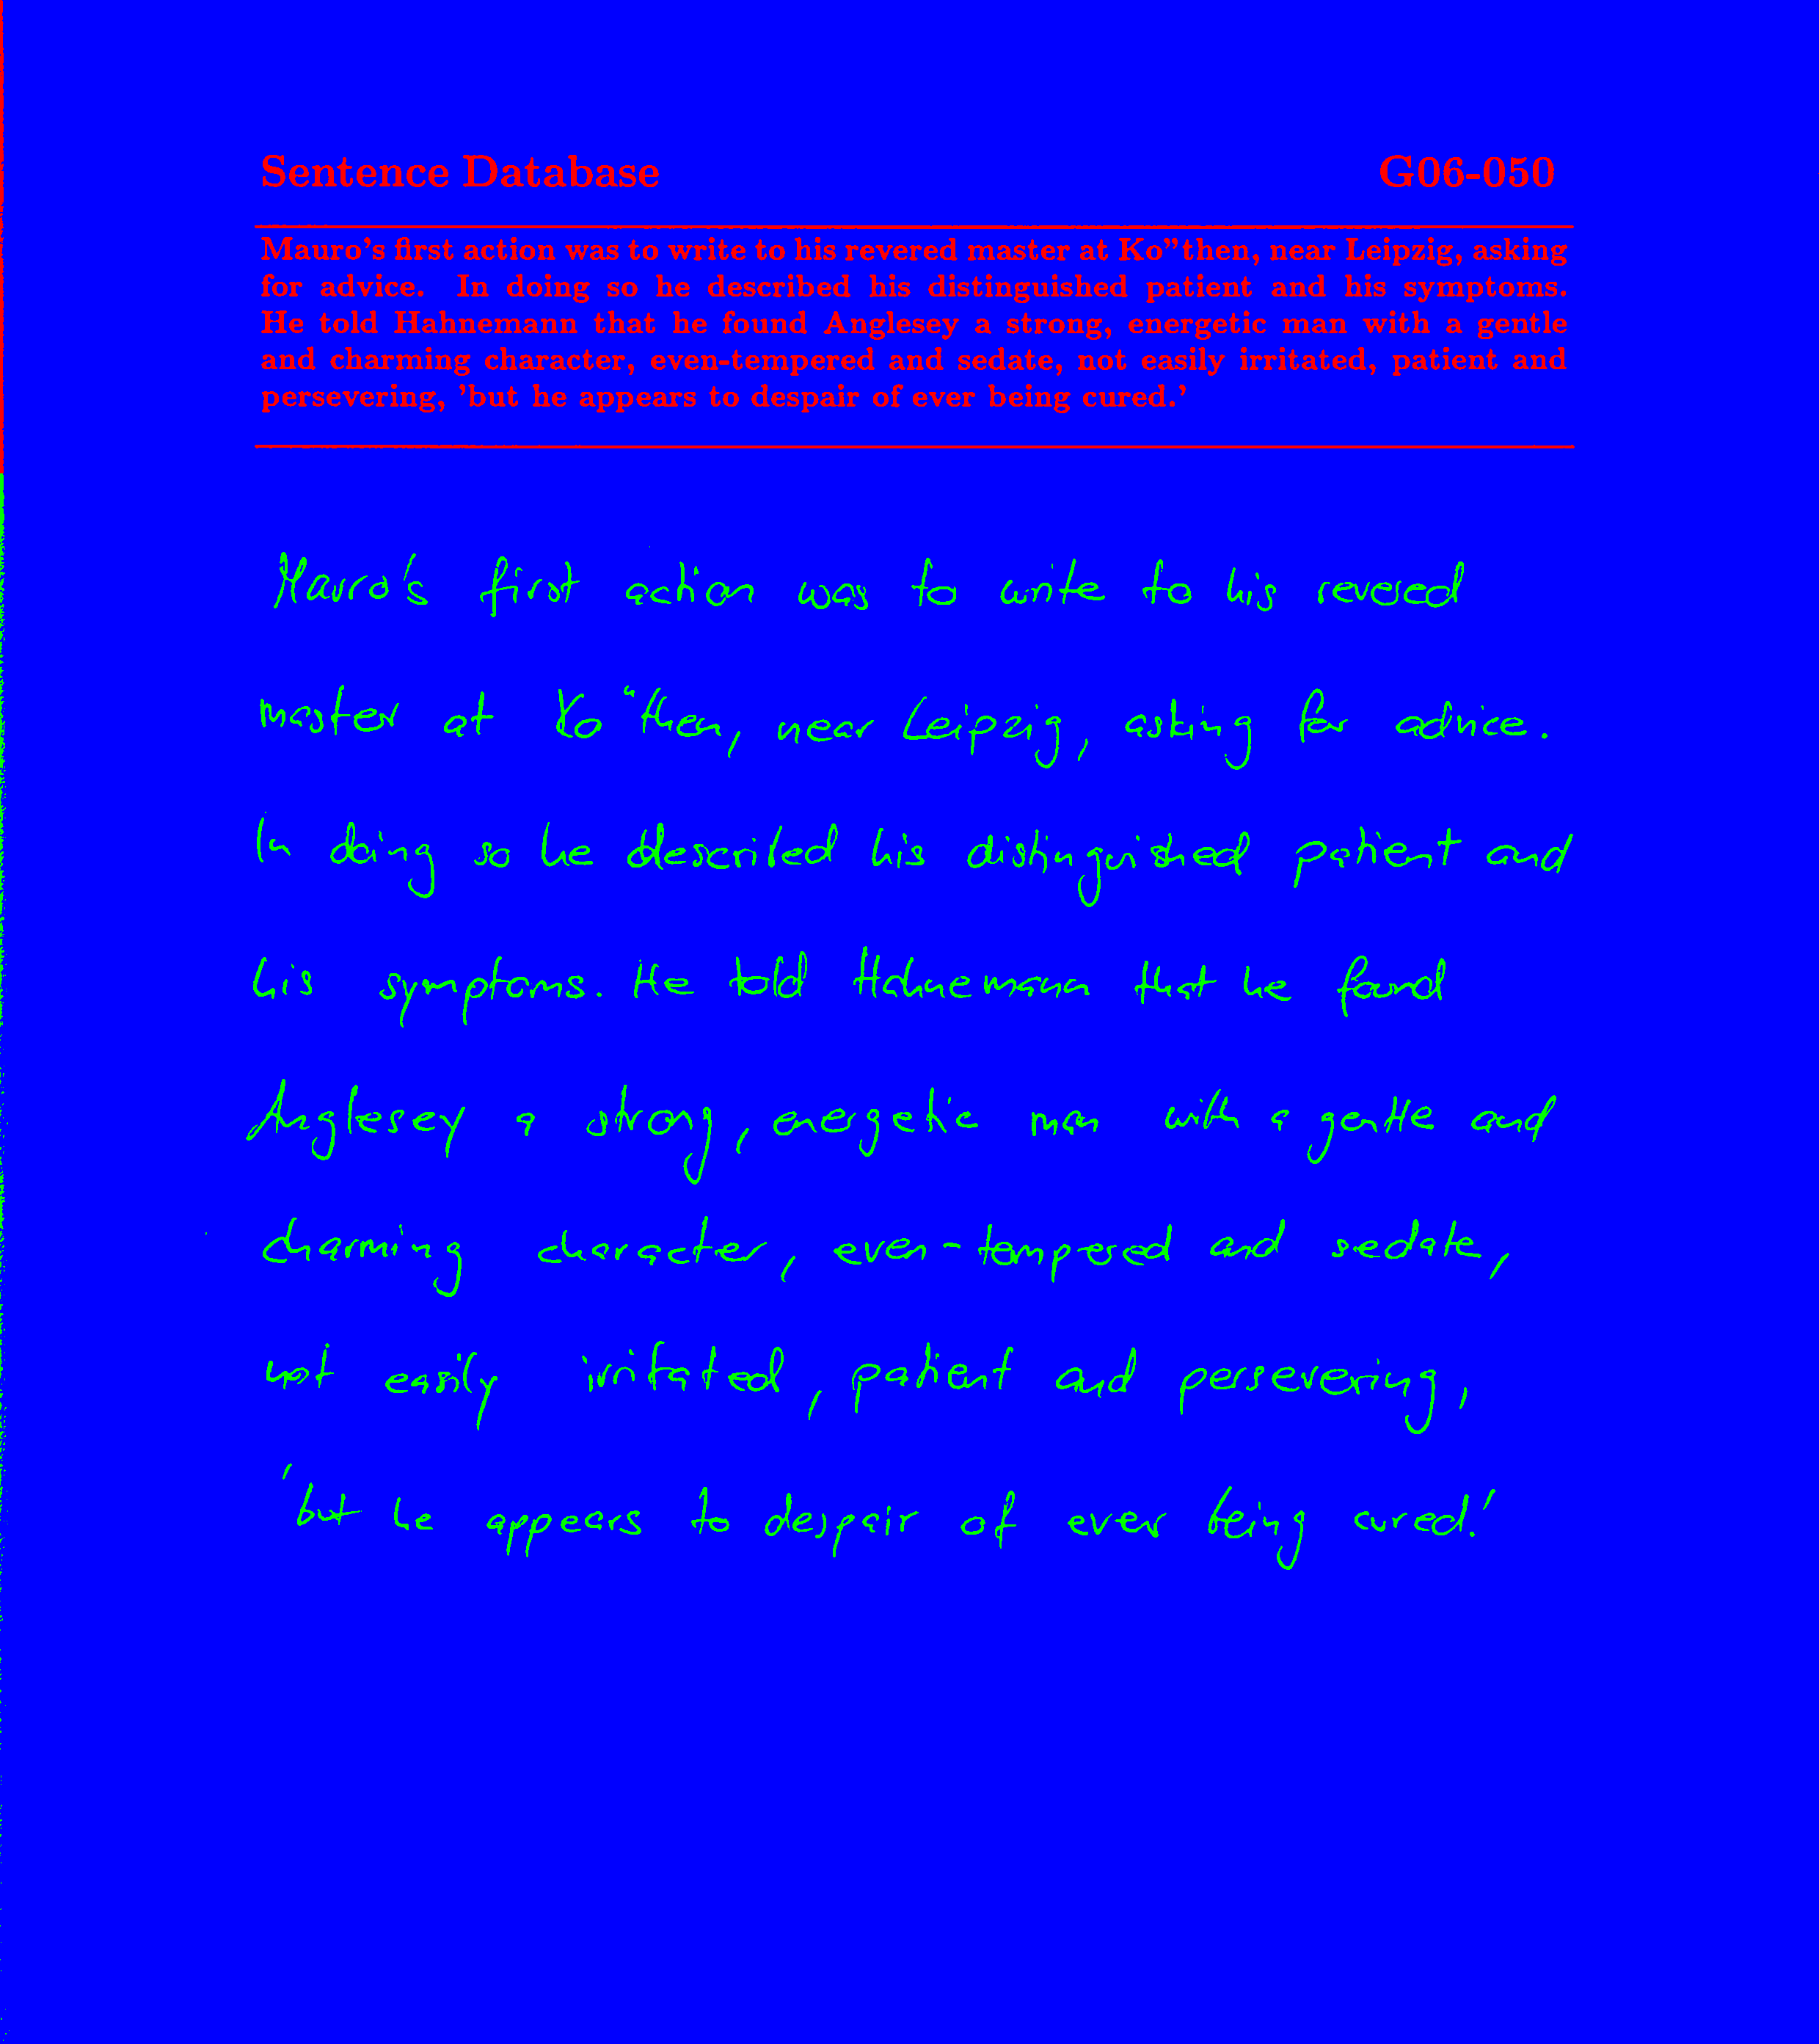 Sentence Database G06-050
Mauro's first action was to write to his revered master at Ko"then, near Leipzig, asking
for advice. In doing so he described his distinguished patient and his symptoms.
He told Hahnemann that he found Anglesey a strong, energetic man with a gentle
and charming character, even-tempered and sedate, not easily irritated, patient and
persevering, 'but he appears to despair of ever being cured.'
Mauro's first action was to write to his revered
master at Ko"then, near Leipzig, asking for advice.
In doing so he described his distinguished patient and
his symptoms. He told Hahnemann that he found
Anglesey a strong, energetic man with a gentle and
charming character, even-tempered and sedate,
not easily irritated, patient and persevering,
'but he appears to despair of ever being cured.'